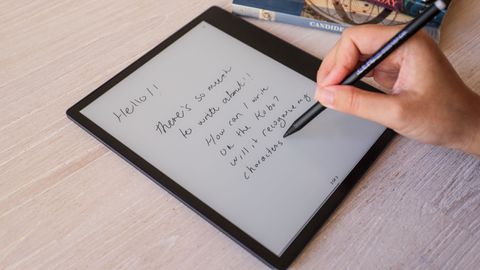 Hello!!
There's so much
to write about!!
How can I write
on the Kobo?
will it recognise my
characters
CANDIDE